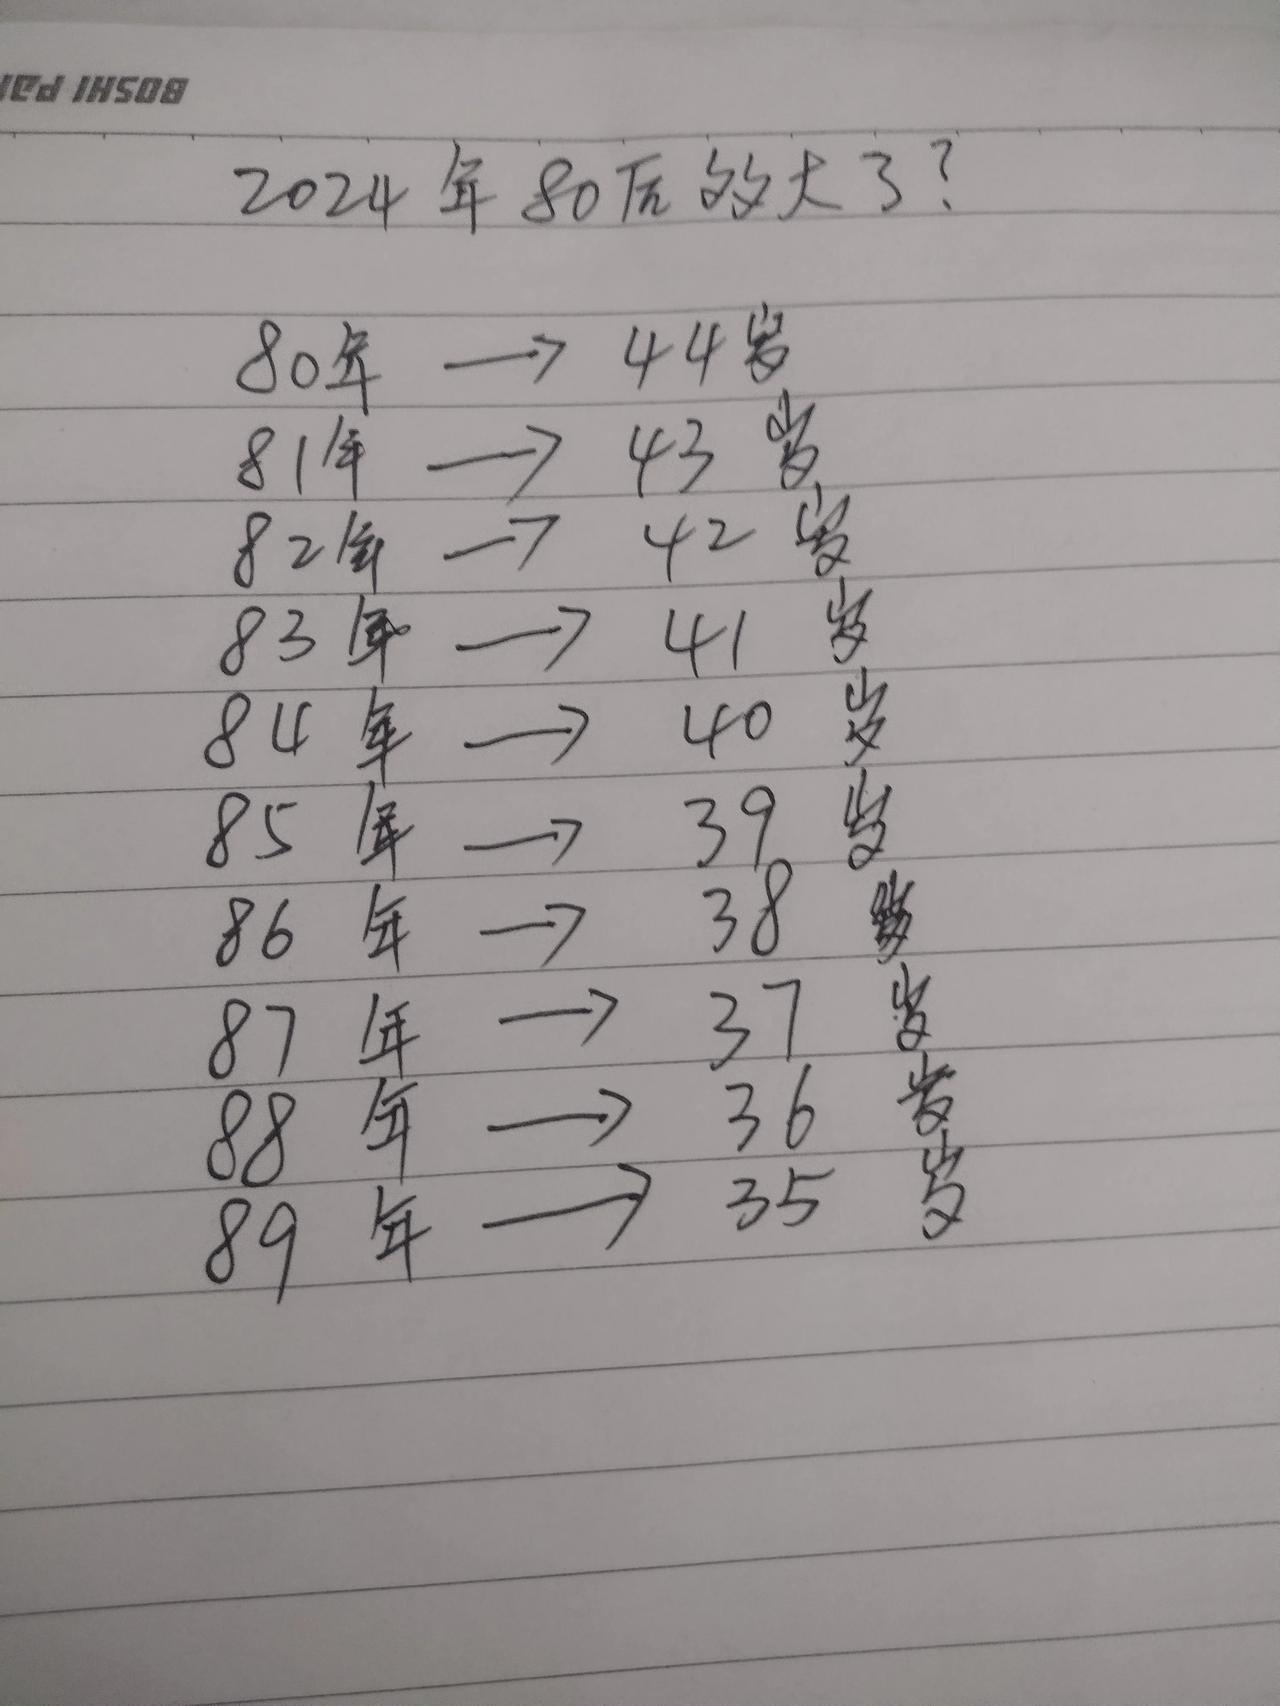 BOSHI
2024年80后多大了?
80年 → 44岁
81年 → 43岁
82年 → 42岁
83年 → 41岁
84年 → 40岁
85年 → 39岁
86年 → 38岁
87年 → 37岁
88年 → 36岁
89年 → 35岁